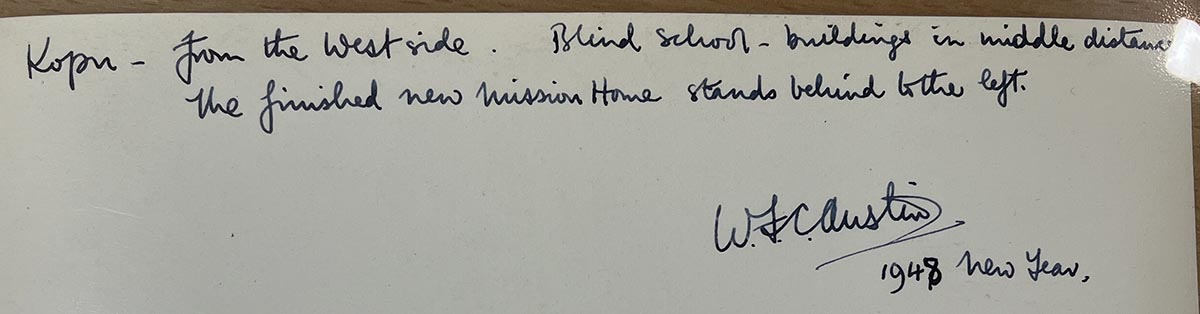 Kopu - From the West side. Blind School - buildings in middle distance
The finished new Mission Home stands behind to the left.
W.F.C. Austin
1948 New Year.